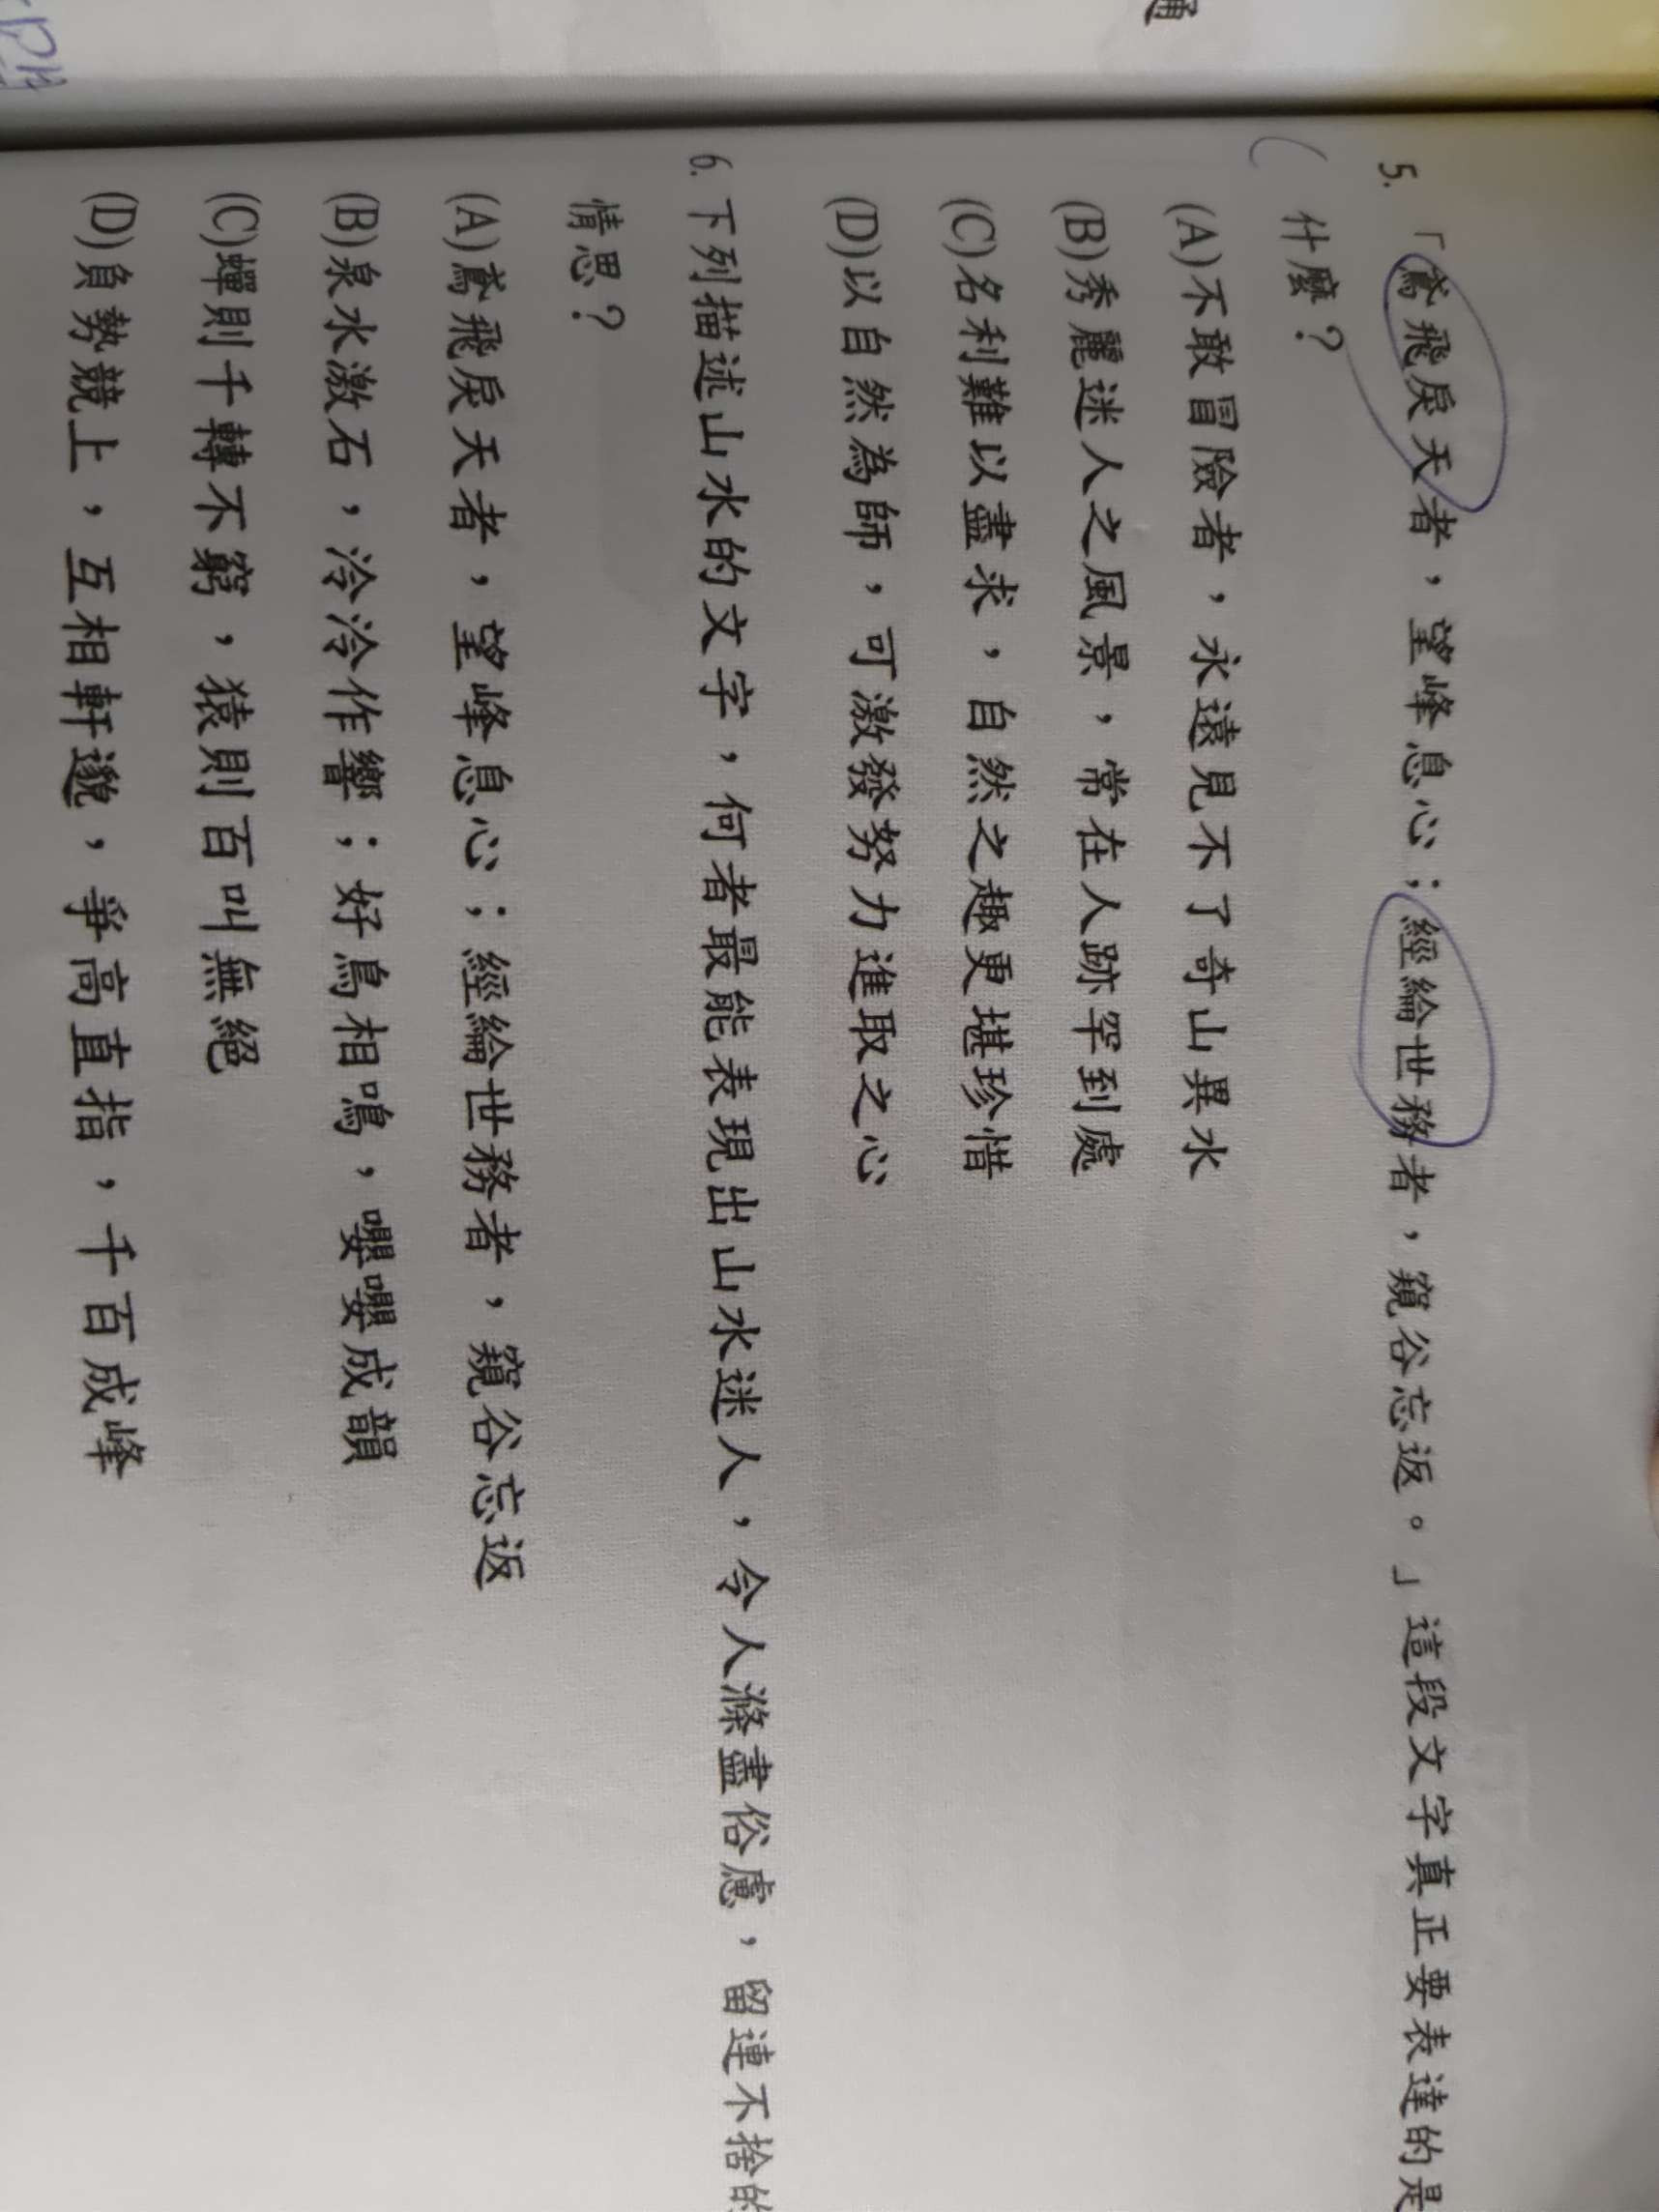 通
5.「鳶飛戾天者，望峰息心；經綸世務者，窺谷忘返。」這段文字真正要表達的是
什麼？
(A)不敢冒險者，永遠見不了奇山異水
(B)秀麗迷人之風景，常在人跡罕到處
(C)名利難以盡求，自然之趣更堪珍惜
(D)以自然為師，可激發努力進取之心
6.下列描述山水的文字，何者最能表現出山水迷人，令人滌盡俗慮，留連不捨的
情思？
(A)鳶飛戾天者，望峰息心；經綸世務者，窺谷忘返
(B)泉水激石，泠泠作響；好鳥相鳴，嚶嚶成韻
(C)蟬則千轉不窮，猿則百叫無絕
(D)負勢競上，互相軒邈，爭高直指，千百成峰